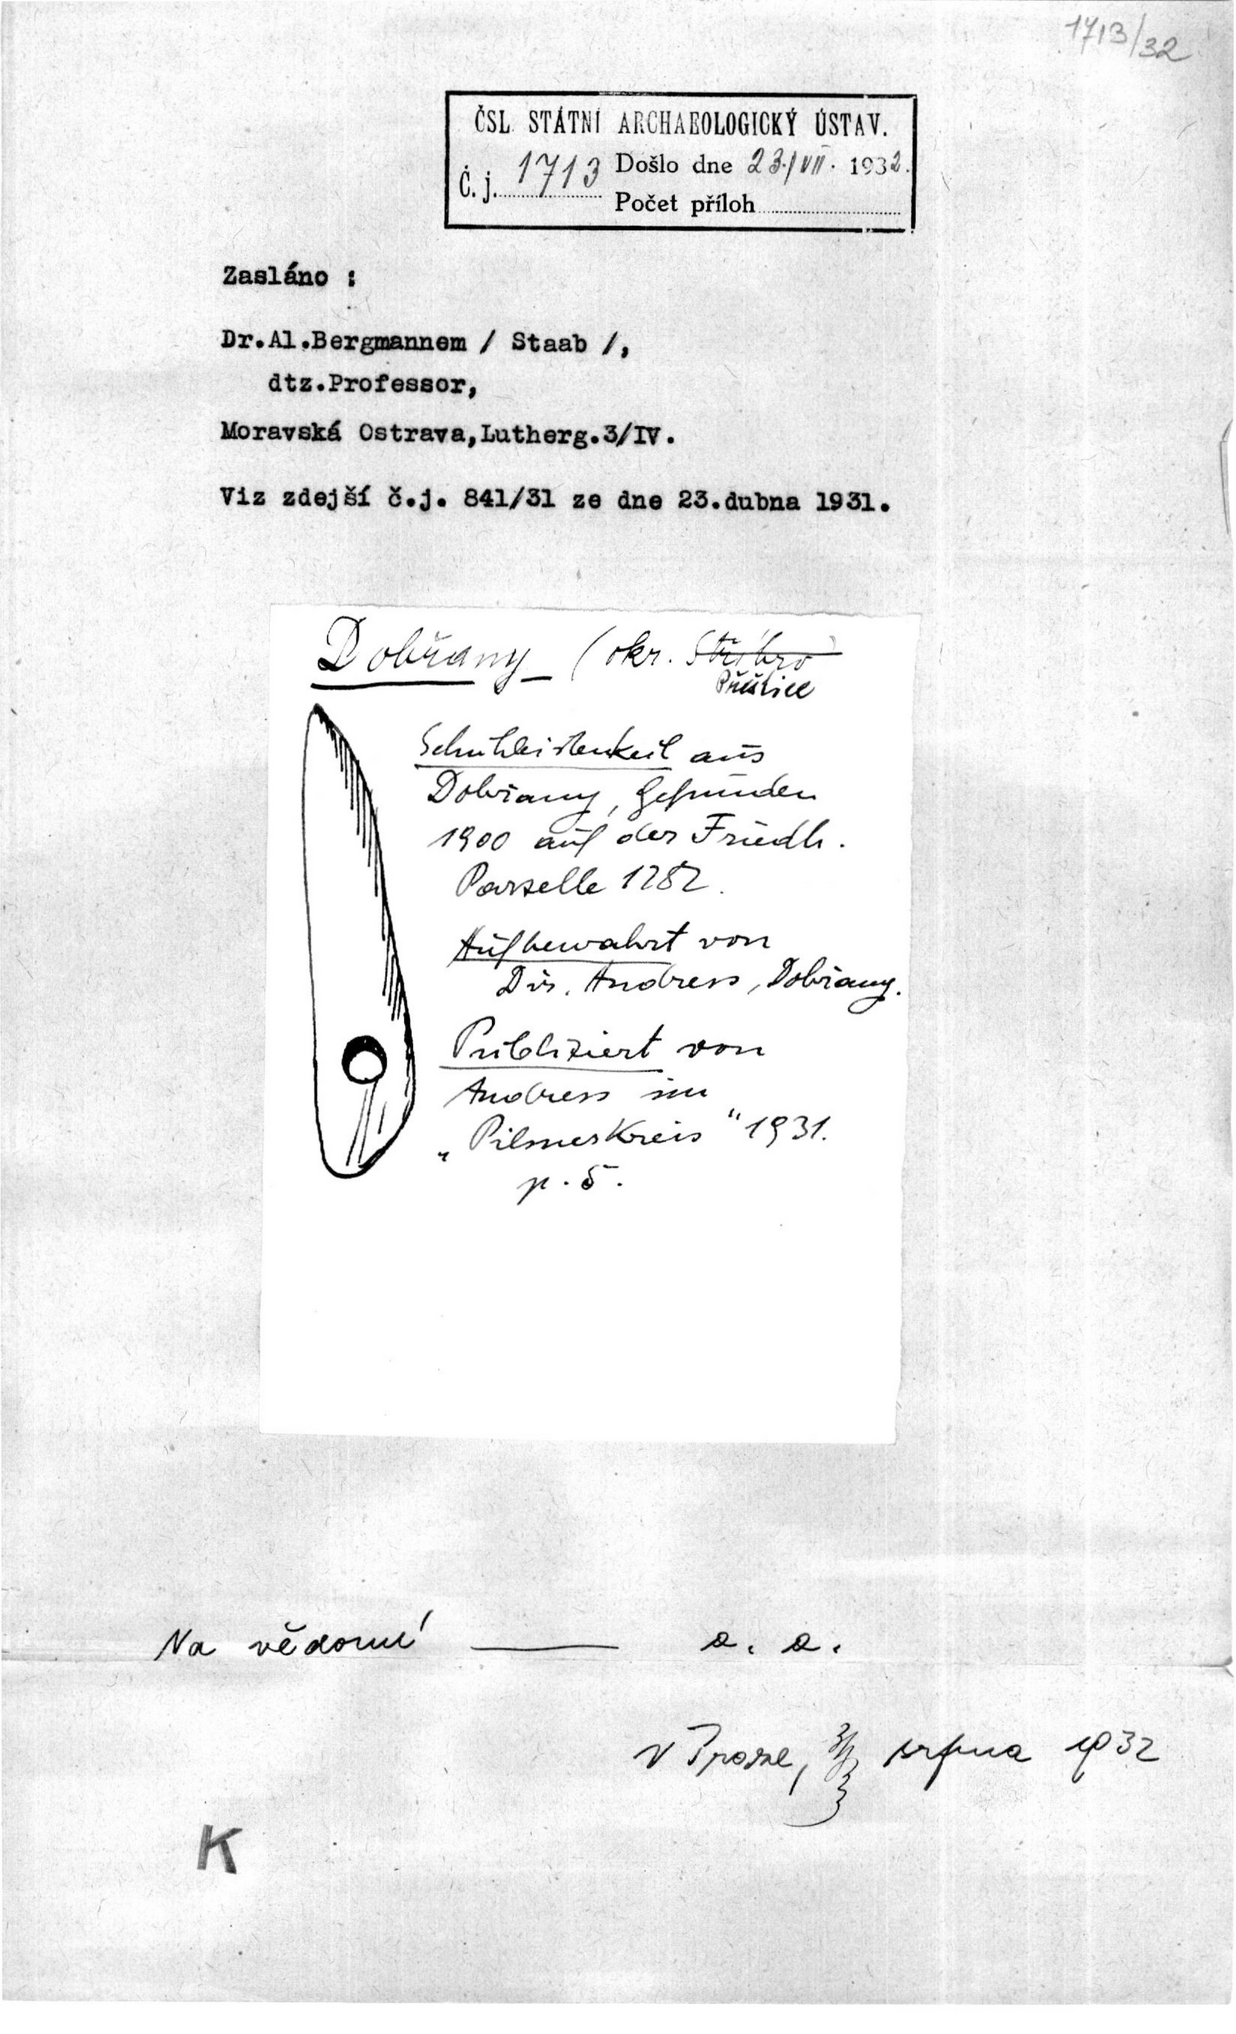 1713/32
ČSL. STÁTNÍ ARCHAEOLOGICKÝ ÚSTAV.
Č. j. 1713 Došlo dne 23./VII. 1932.
Počet příloh
Zasláno :
Dr.Al.Bergmannem / Staab /,
dtz.Professor,
Moravská Ostrava,Lutherg.3/IV.
Viz zdejší č.j. 841/31 ze dne 23.dubna 1931.
Dobřany (okr. Stříbro)
Přeštice
Schuhleistenkeil aus
Dobřany, gefunden
1900 auf der Friedh.
Parzelle 1282.
Aufbewahrt von
Dir. Andress, Dobřany.
Publiziert von
Andress im
„Pilsner Kreis" 1931.
p. 5.
Na vědomí — a. a.
V Praze, srpna 1932
K